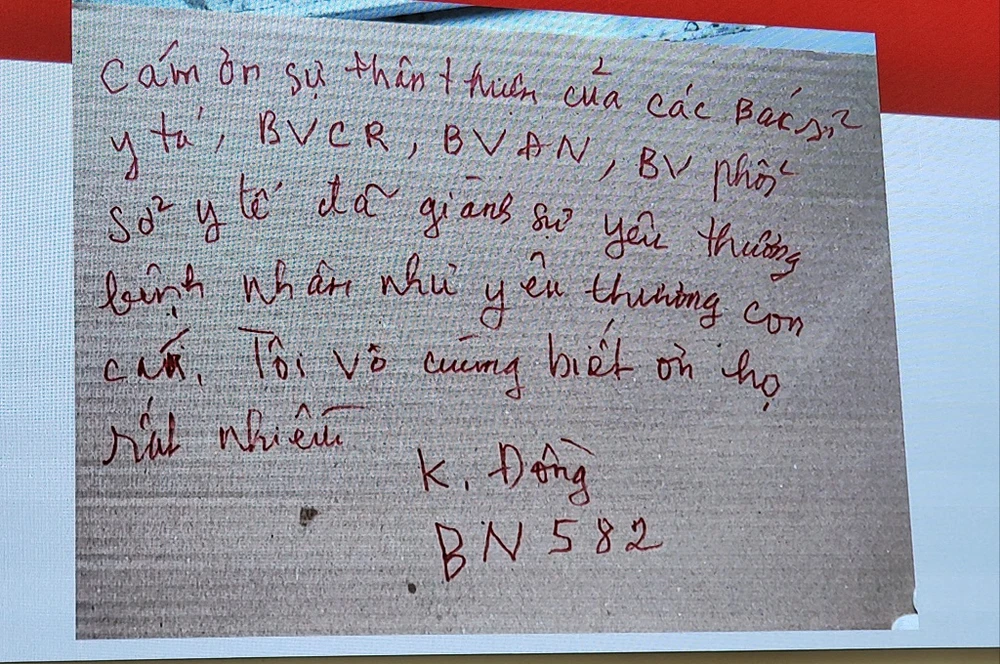 Cám ơn sự thân thiện của các Bác sĩ
y tá, BVCR, BVĐN, BV phổi
Sở y tế đã giành sự yêu thương
bệnh nhân như yêu thương con
cái. Tôi vô cùng biết ơn họ
rất nhiều
K. Đồng
BN 582